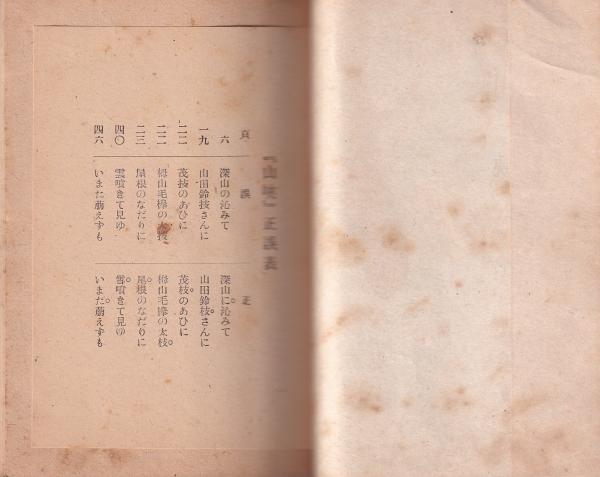 『山峽』正誤表
頁 誤 正
六 深山の沁みて 深山に沁みて
一九 山田鈴技さんに 山田鈴枝さんに
二二 茂技のあひに 茂枝のあひに
二二 毛欅の太技 毛欅の太枝
二三 屋根のなだりに 尾根のなだりに
四〇 雲噴きて見ゆ 雪噴きて見ゆ
四六 いまた萠えずも いまだ萠えずも